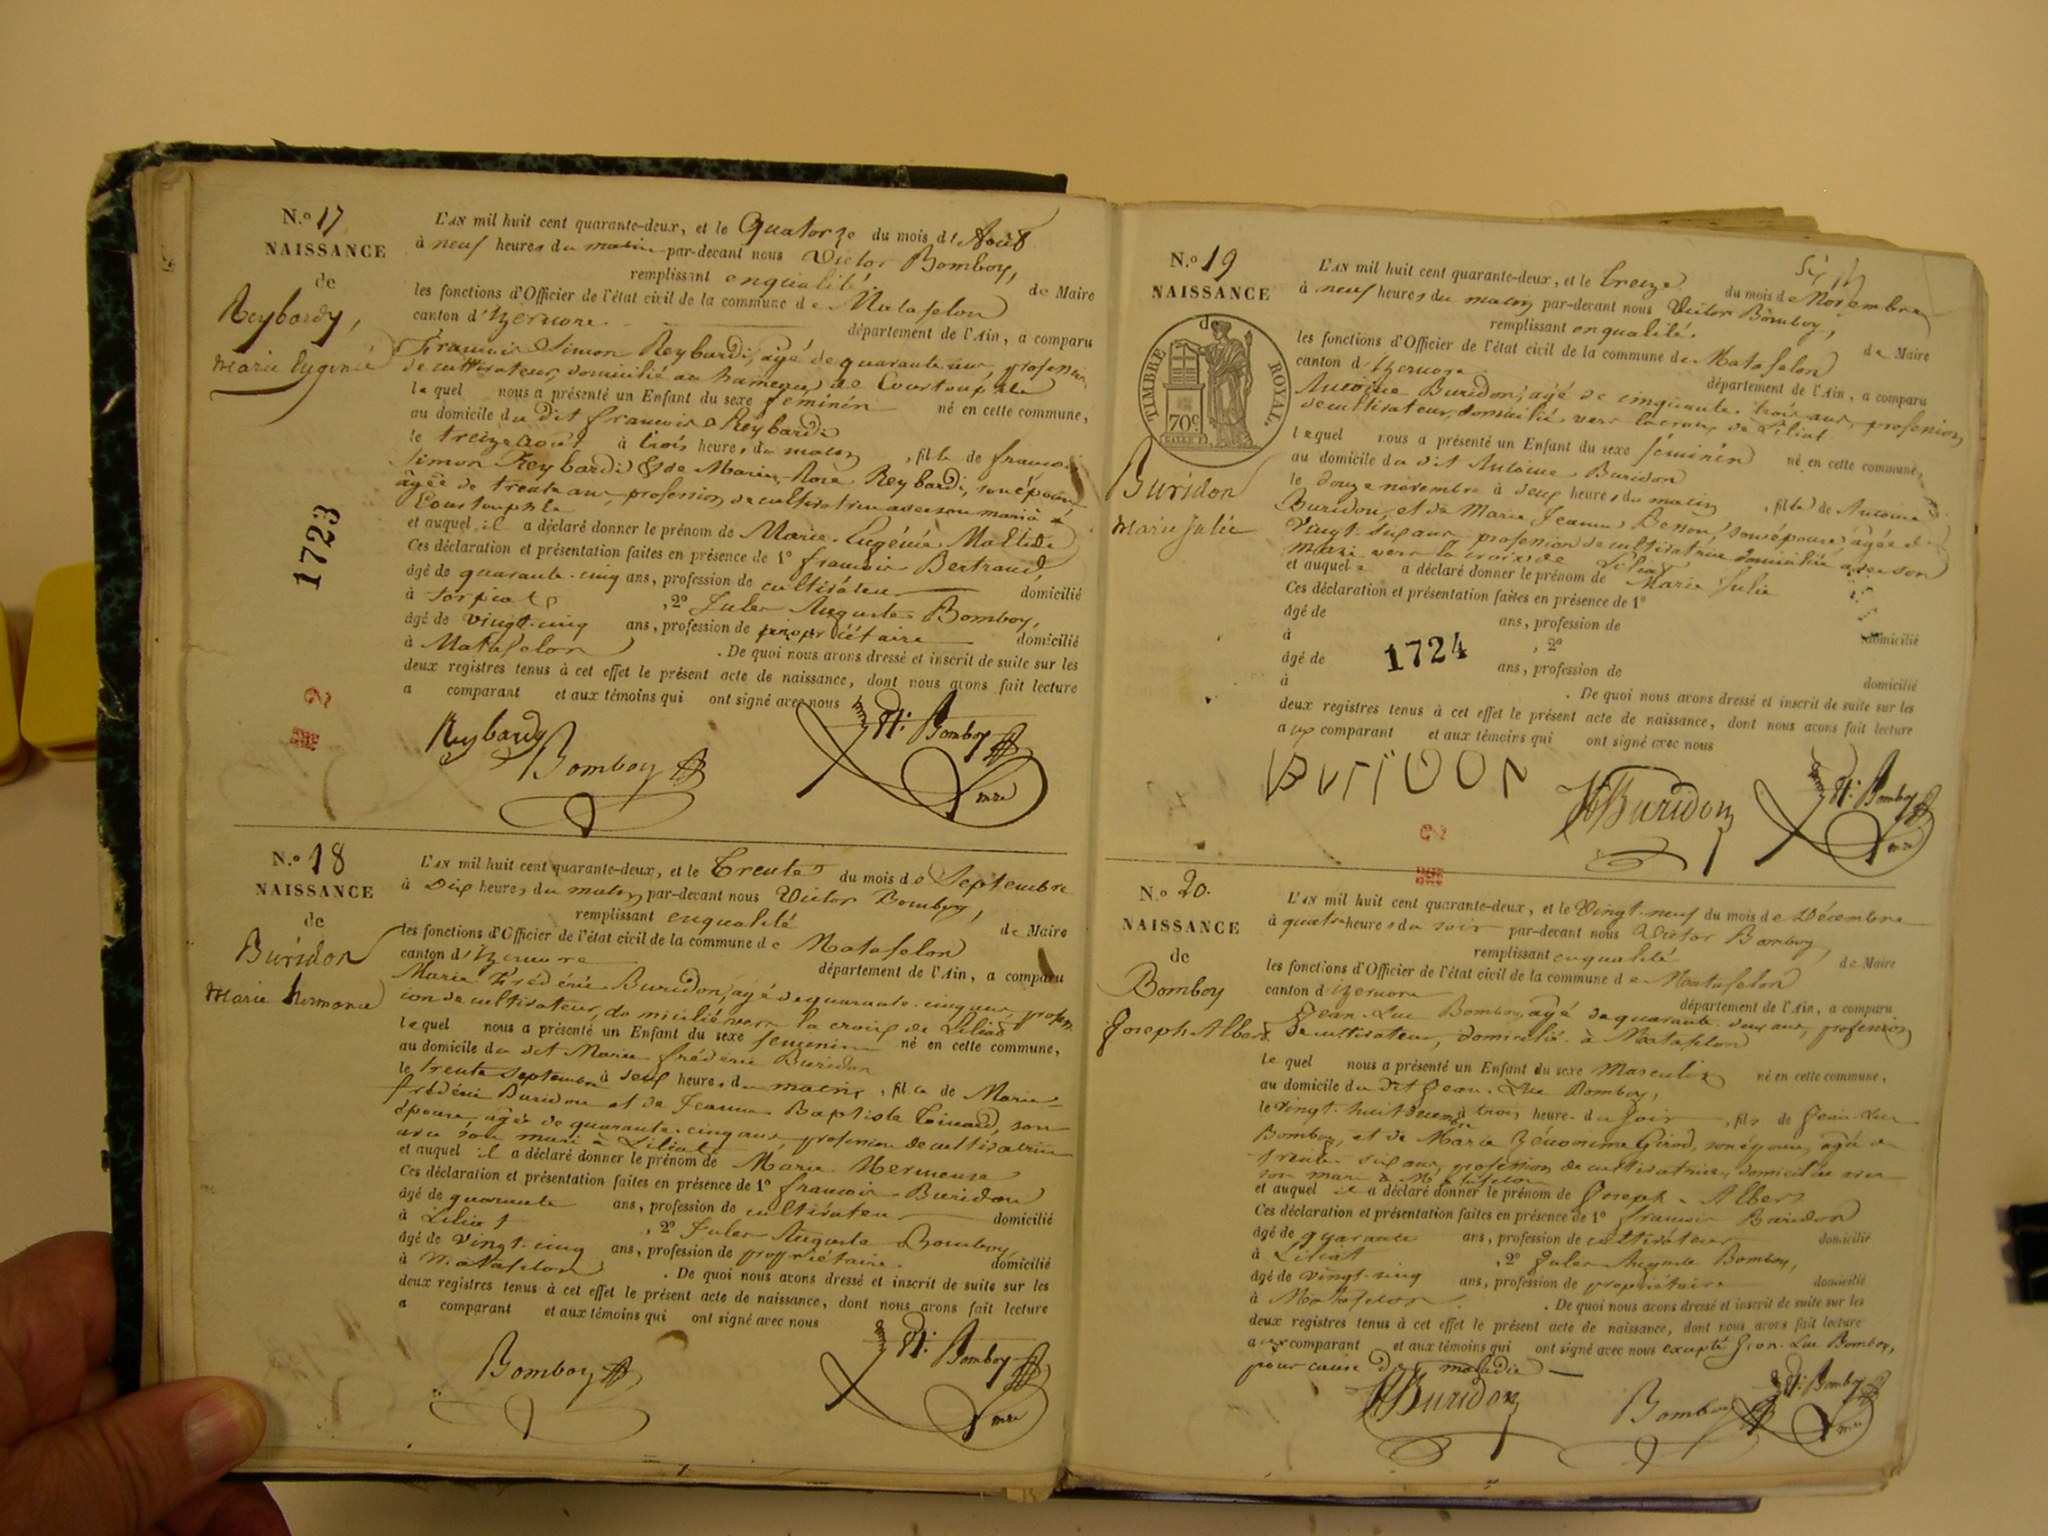 N.º 17
NAISSANCE
de
Reybardy,
Marie Eugénie
1723
L'AN mil huit cent quarante-deux, et le Quatorze du mois d'Août
à neuf heures du matin par-devant nous Victor Bomboy,
remplissant enqualité de Maire
les fonctions d'Officier de l'état civil de la commune de Matafelon
canton d'Izernore département de l'Ain, a comparu
François Simon Reybardi, âgé de quarante ans, profession
de cultivateur, domicilié au hameau de
lequel nous a présenté un Enfant du sexe féminin né en cette commune,
au domicile du dit françois Reybardi
le treize août à trois heures du matin, fille de françois
Simon Reybardi & de Marie Rose Reybardi, son épouse
âgée de trente ans, profession de cultivatrice avec son mari à
et auquel il a déclaré donner le prénom de Marie Eugénie
Ces déclaration et présentation faites en présence de 1º françois Bertrand,
âgé de quarante-cinq ans, profession de cultivateur domicilié
à , 2º Jules Auguste Bomboy,
âgé de vingt-cinq ans, profession de propriétaire domicilié
à Matafelon . De quoi nous avons dressé et inscrit de suite sur les
deux registres tenus à cet effet le présent acte de naissance, dont nous avons fait lecture
a comparant et aux témoins qui ont signé avec nous
Reybardy
Bomboy
Vi: Bomboy
mre
N.º 18
NAISSANCE
de
Buridon
Marie
L'AN mil huit cent quarante-deux, et le Trente du mois de Septembre
à Dix heures du matin par-devant nous Victor Bomboy,
remplissant enqualité de Maire
les fonctions d'Officier de l'état civil de la commune de Matafelon
canton d'Izernore département de l'Ain, a comparu
Marie Frédéric Buridon, âgé de quarante-cinq ans, profess
ion de cultivateur, domicilié vers la croix de Liliat
lequel nous a présenté un Enfant du sexe feminin né en cette commune,
au domicile du dit Marie frédéric Buridon
le trente septembre à heures du matin, fille de Marie
frédéric Buridon et de Jeanne Baptiste , son
épouse, âgée de quarante-cinq ans, profession de cultivatrice
avec son mari à Liliat
et auquel il a déclaré donner le prénom de Marie
Ces déclaration et présentation faites en présence de 1º françois Buridon
âgé de quarante ans, profession de cultivateur domicilié
à Liliat , 2º Jules Auguste Bomboy,
âgé de vingt-cinq ans, profession de propriétaire. domicilié
à Matafelon . De quoi nous avons dressé et inscrit de suite sur les
deux registres tenus à cet effet le présent acte de naissance, dont nous avons fait lecture
a comparant et aux témoins qui ont signé avec nous
Bomboy
Vi: Bomboy
mre
N.º 19
NAISSANCE
TIMBRE ROYAL.
70c
Buridon
Marie Julie
L'AN mil huit cent quarante-deux, et le treize du mois de Novembre
à neuf heures du matin par-devant nous Victor Bomboy,
remplissant enqualité. de Maire
les fonctions d'Officier de l'état civil de la commune de Matafelon
canton d'Izernore département de l'Ain, a comparu
Antoine Buridon, âgé de cinquante-trois ans, profession
de cultivateur, domicilié vers la croix de Liliat
lequel nous a présenté un Enfant du sexe féminin né en cette commune,
au domicile du dit Antoine Buridon
le douze novembre à heures du matin, fille de Antoine
Buridon, et de Marie Jeanne Benon, son épouse, âgée de
Vingt-six ans, profession de cultivatrice domiciliée avec son
mari vers la croix de Liliat
et auquel a déclaré donner le prénom de Marie Julie
Ces déclaration et présentation faites en présence de 1º
âgé de ans, profession de domicilié
à , 2º
âgé de 1724 ans, profession de domicilié
à . De quoi nous avons dressé et inscrit de suite sur les
deux registres tenus à cet effet le présent acte de naissance, dont nous avons fait lecture
aux comparant et aux témoins qui ont signé avec nous
Buridon
Buridon
Vi: Bomboy
mre
N.º 20.
NAISSANCE
de
Bomboy
Joseph Albert
L'AN mil huit cent quarante-deux, et le Vingt-neuf du mois de Décembre
à quatre heures du soir par-devant nous Victor Bomboy,
remplissant enqualité de Maire
les fonctions d'Officier de l'état civil de la commune de Matafelon
canton d'Izernore département de l'Ain, a comparu
Jean-Luc Bomboy, âgé de quarante-deux ans, profession
de cultivateur, domicilié à Matafelon
lequel nous a présenté un Enfant du sexe Masculin né en cette commune,
au domicile du dit Jean-Luc Bomboy,
le vingt-huit décembre à trois heures du soir, fils de Jean-Luc
Bomboy, et de Marie Girod, son épouse, âgée de
trente-six ans, profession de cultivatrice, domiciliée avec
son mari à Matafelon
et auquel il a déclaré donner le prénom de Joseph-Albert
Ces déclaration et présentation faites en présence de 1º françois Buridon
âgé de quarante ans, profession de cultivateur domicilié
à Liliat , 2º Jules Auguste Bomboy,
âgé de vingt-cinq ans, profession de propriétaire domicilié
à Matafelon. . De quoi nous avons dressé et inscrit de suite sur les
deux registres tenus à cet effet le présent acte de naissance, dont nous avons fait lecture
aux comparant et aux témoins qui ont signé avec nous excepté Jean-Luc Bomboy,
pour cause de maladie
Buridon
Bomboy
Vi: Bomboy
mre